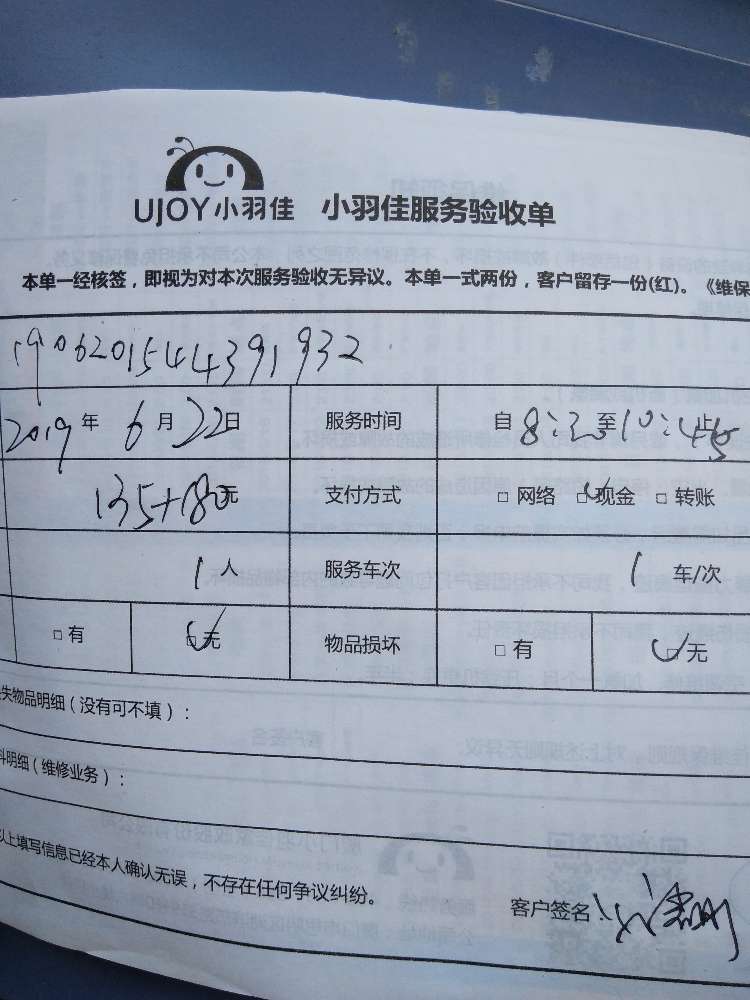 UJOY小羽佳 小羽佳服务验收单
本单一经核签，即视为对本次服务验收无异议。本单一式两份，客户留存一份(红)。《维保
190620154439１932
2019年 6月22日 服务时间 自8:25至10:45止
135+80元 支付方式 □ 网络 □ 现金 □ 转账
1人 服务车次 1 车/次
□ 有 □ 无 物品损坏 □ 有 □ 无
失物品明细（没有可不填）：
料明细（维修业务）：
以上填写信息已经本人确认无误，不存在任何争议纠纷。
客户签名：